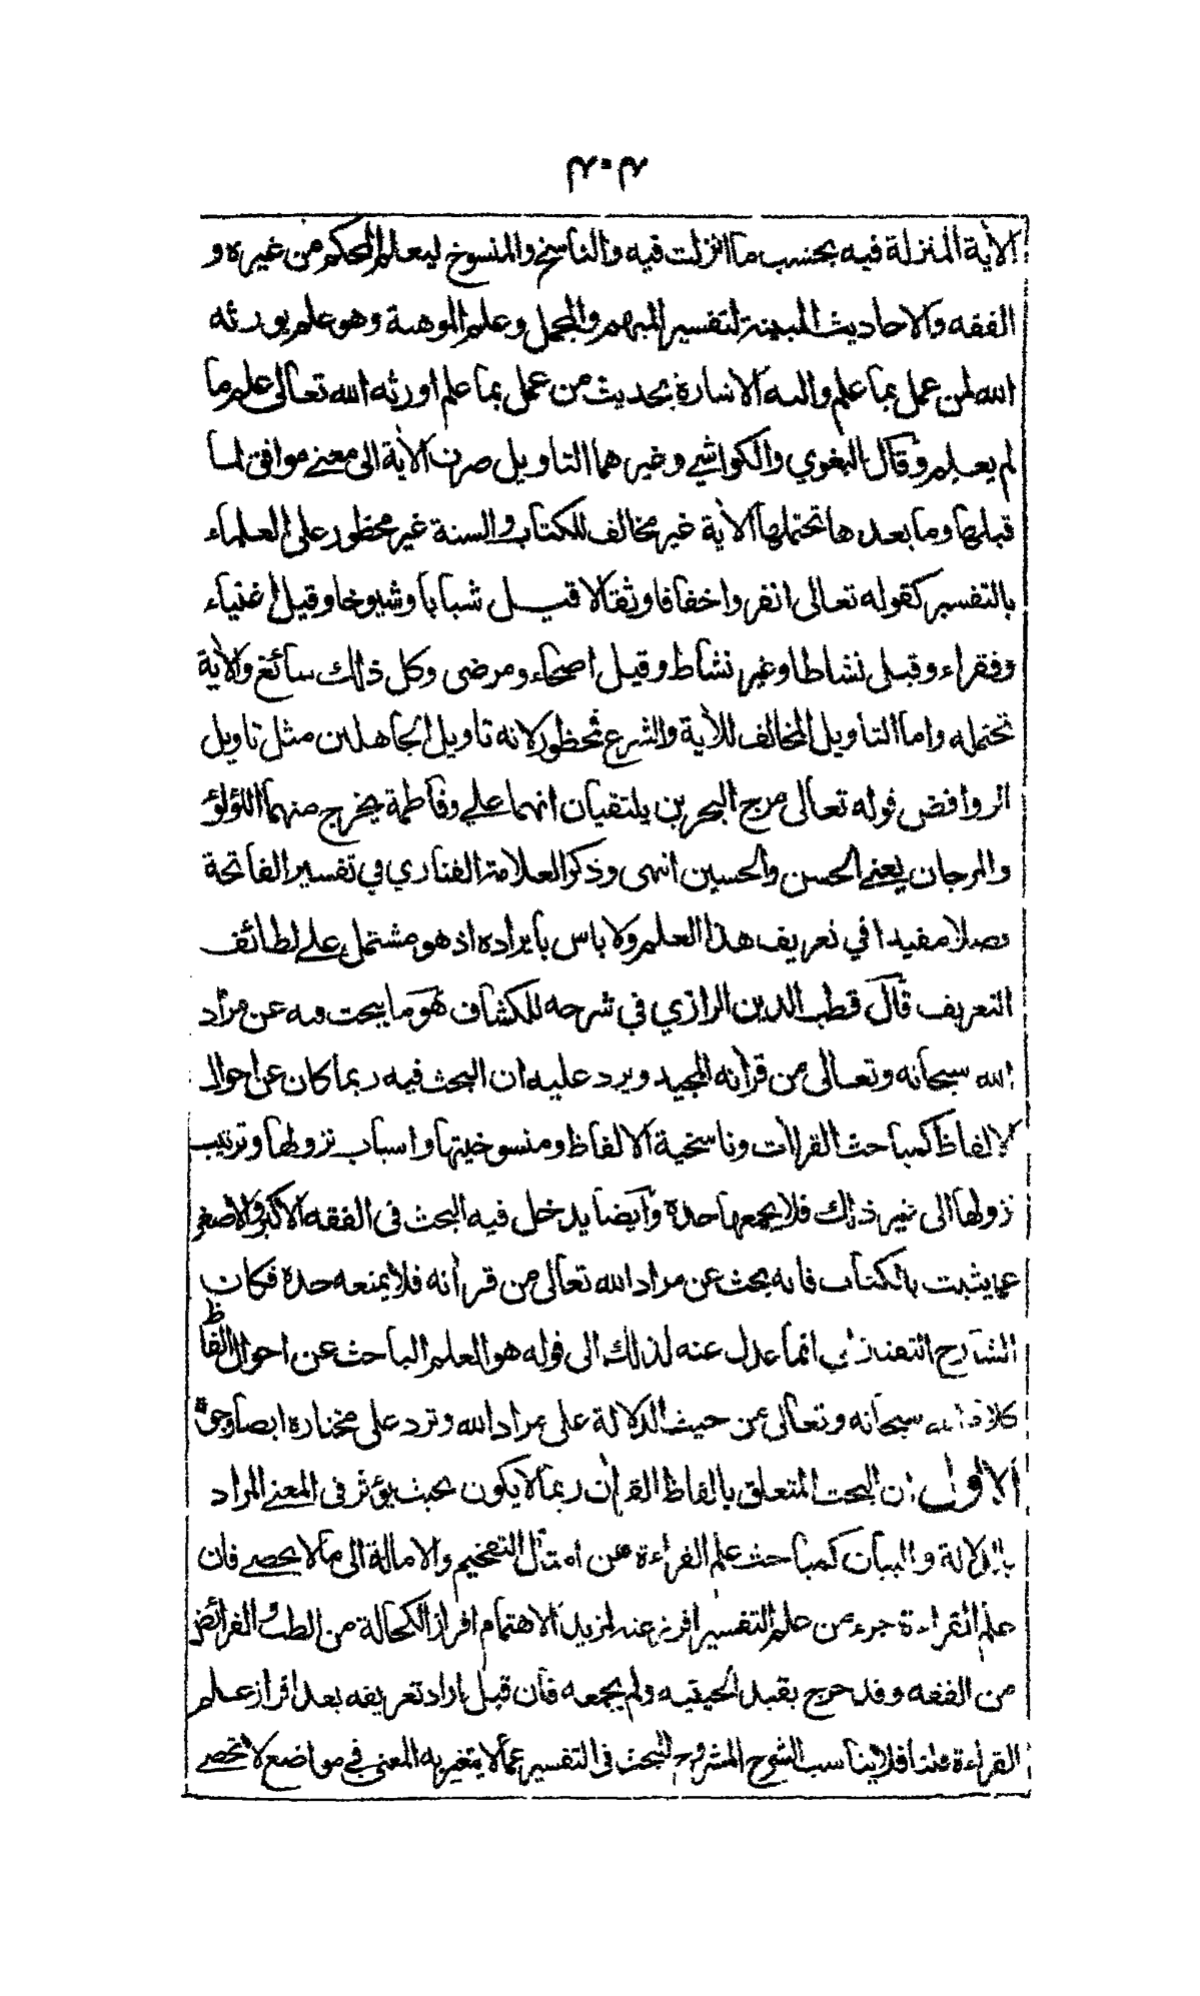 ٤٠٤
الاية المنزلة فيه بحسب ما انزلت فيه والناسخ والمنسوخ ليعلم المحكم من غيره و
الفقه والاحاديث المبينة لتفسير المبهم والمجمل وعلم الموهبة وهو علم يورثه
الله لمن عمل بما علم واليه الاشارة بحديث من عمل بما علم اورثه الله تعالى علم ما
لم يعلم وقال البغوي والكواشي وغيرهما التاويل صرف الاية الى معنى موافق لما
قبلها وما بعدها تحتملها الاية غير مخالف للكتاب والسنة غير محظور على العلماء
بالتفسير كقوله تعالى انفروا خفافا وثقالا قيل شبابا وشيوخا وقيل اغنياء
وفقراء وقيل نشاطا وغير نشاط وقيل اصحاء ومرضى وكل ذلك سائغ والاية
تحتمله واما التاويل المخالف للاية والشرع فمحظور لانه تاويل الجاهلين مثل تاويل
الروافض قوله تعالى مرج البحرين يلتقيان انهما علي وفاطمة يخرج منهما اللؤلؤ
والمرجان يعني الحسن والحسين انتهى وذكر العلامة الفناري في تفسير الفاتحة
فصلا مفيدا في تعريف هذا العلم ولا باس بايراده اذ هو مشتمل على لطائف
التعريف قال قطب الدين الرازي في شرحه للكشاف هو ما يبحث فيه عن مراد
الله سبحانه وتعالى من قرانه المجيد ويرد عليه ان البحث فيه ربما كان عن احوال
الالفاظ كمباحث القراات وناسخية الالفاظ ومنسوخيتها واسباب نزولها وترتيب
نزولها الى غير ذلك فلا يجمعها حده وايضا يدخل فيه البحث في الفقه الاكبر والاصغر
عما يثبت بالكتاب فانه بحث عن مراد الله تعالى من قرانه فلا يمنعه حده فكان
الشارح التفتازاني انما عدل عنه لذلك الى قوله هو العلم الباحث عن احوال الفاظ
كلام الله سبحانه وتعالى من حيث الدلالة على مراد الله وترد على مختاره ايضا وجوه
الاول ان البحث المتعلق بالفاظ القران ربما لا يكون بحيث يؤثر في المعنى المراد
بالدلالة والبيان كمباحث علم القراءة عن امثال التفخيم والامالة الى ما لا يحصى فان
علم القراءة جزء من علم التفسير افرز عنه لمزيد الاهتمام افراز الكحالة من الطب والفرائض
من الفقه وقد خرج بقيد الحيثية ولم يجمعه فان قيل اراد تعريفه بعد افراز علم
القراءة قلنا فلا يناسب الشرح المشروح للبحث في التفسير عما لا يتغير به المعنى في مواضع لا تحصى